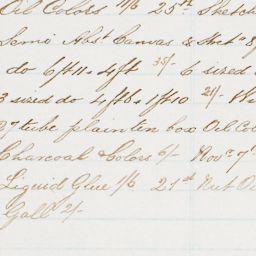 Oil Colors 11/6 25st Sketch
Semi Abst Canvas &
do 6ft11 x 4ft 35/- 6 sized
3 sized do 4ft6 x 1ft10 24/-
tube plain tin box Oil Co
Charcoal & Colors 6/- Nov 7
Liquid Glue 1/6 21st Nut O
Gall 2/-